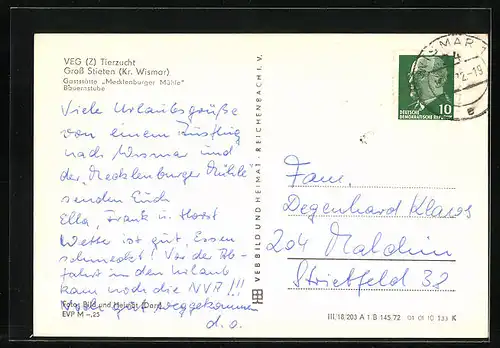 VEG (Z) Tierzucht
Groß Stieten (Kr. Wismar)
Gaststätte „Mecklenburger Mühle"
Bauernstube
Viele Urlaubsgrüße
von einem Ausflug
nach Wismar und
der „Mecklenburger Mühle"
senden Euch
Ella, Frank u. Horst
Wetter ist gut, Essen
schmeckt! Vor der Ab-
fahrt in den Urlaub
kam noch die NVA!!!
gut weggekommen
d. o.
Foto: Bild und Heimat (Darr)
EVP M –,25
VEB BILD UND HEIMAT · REICHENBACH I. V.
SMAR 1
2-19
e
10
DEUTSCHE
DEMOKRATISCHE REPUBLIK
Fam.
Degenhard Klaws
204 Malchin
Strietfeld 32
III/18/203 A 1 B 145/72 01 01 10 133 K